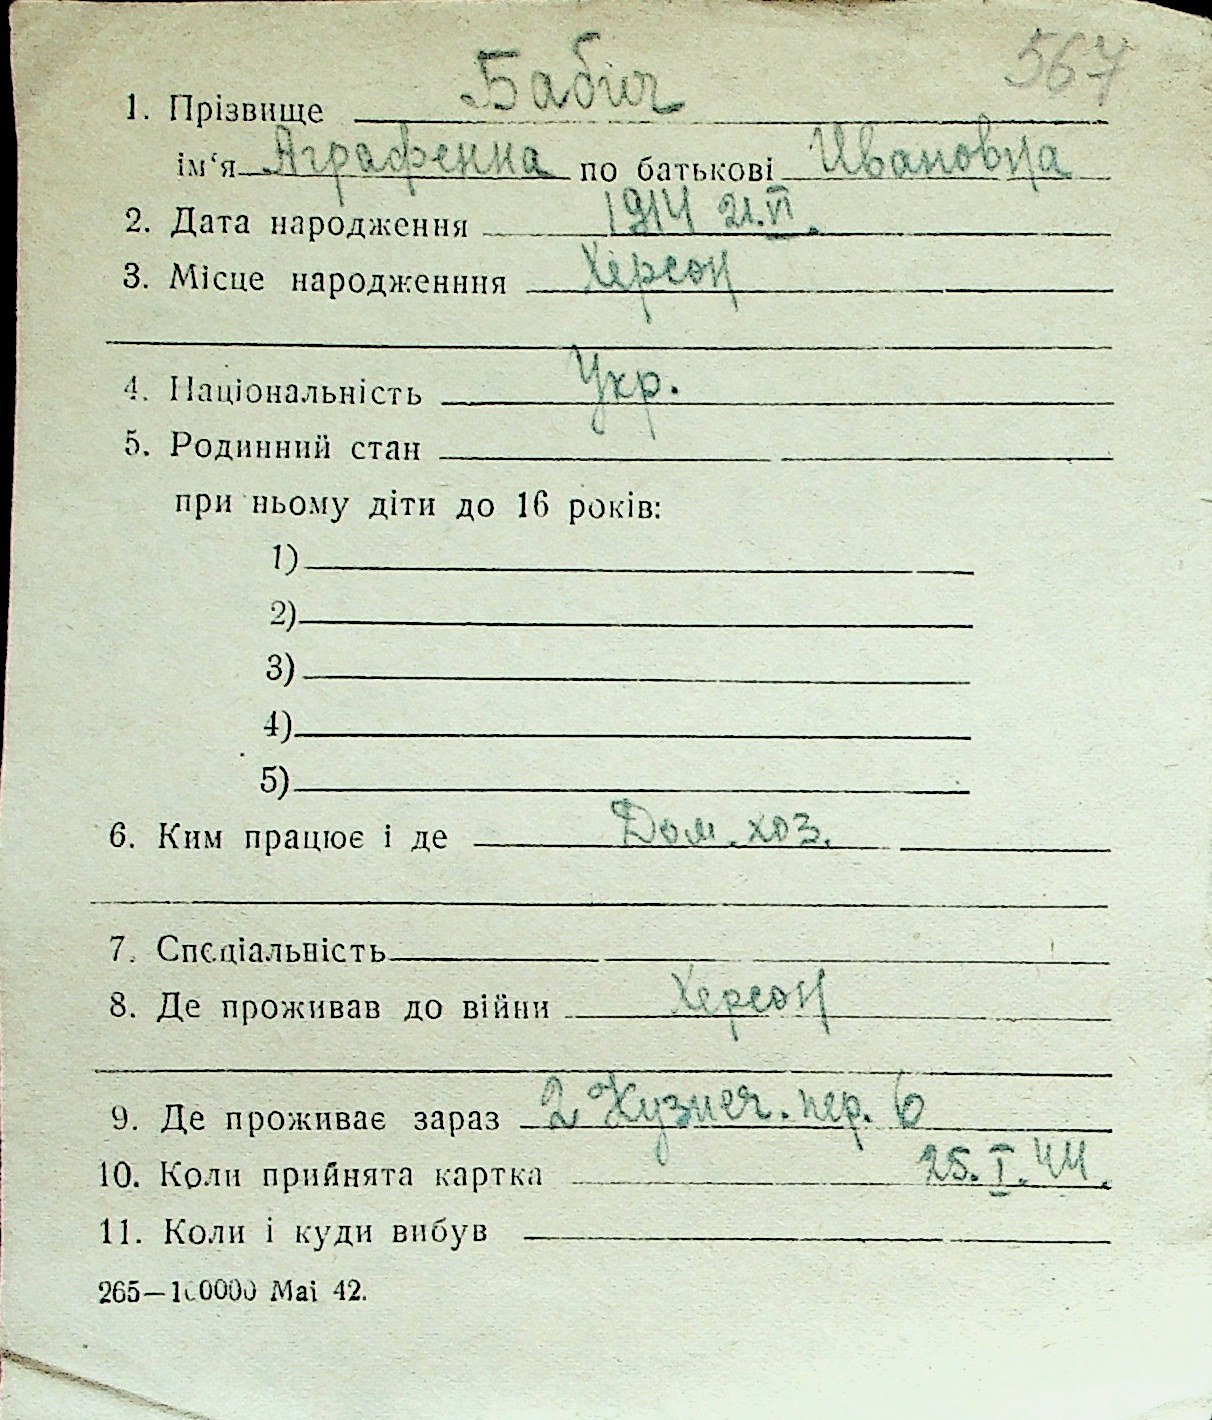 567
1. Прізвище Бабич
ім‘я Аграфенна по батькові Ивановна
2. Дата народження 1914 21.VI.
3. Місце народженння Херсон
4. Національність Укр.
5. Родинний стан
при ньому діти до 16 років:
1)
2)
3)
4)
5)
6. Ким працює і де Дом. хоз.
7. Спеціальність
8. Де проживав до війни Херсон
9. Де проживає зараз 2 Кузнеч. пер. 6
10. Коли прийнята картка 25.I.44.
11. Коли і куди вибув
265—100000 Mai 42.